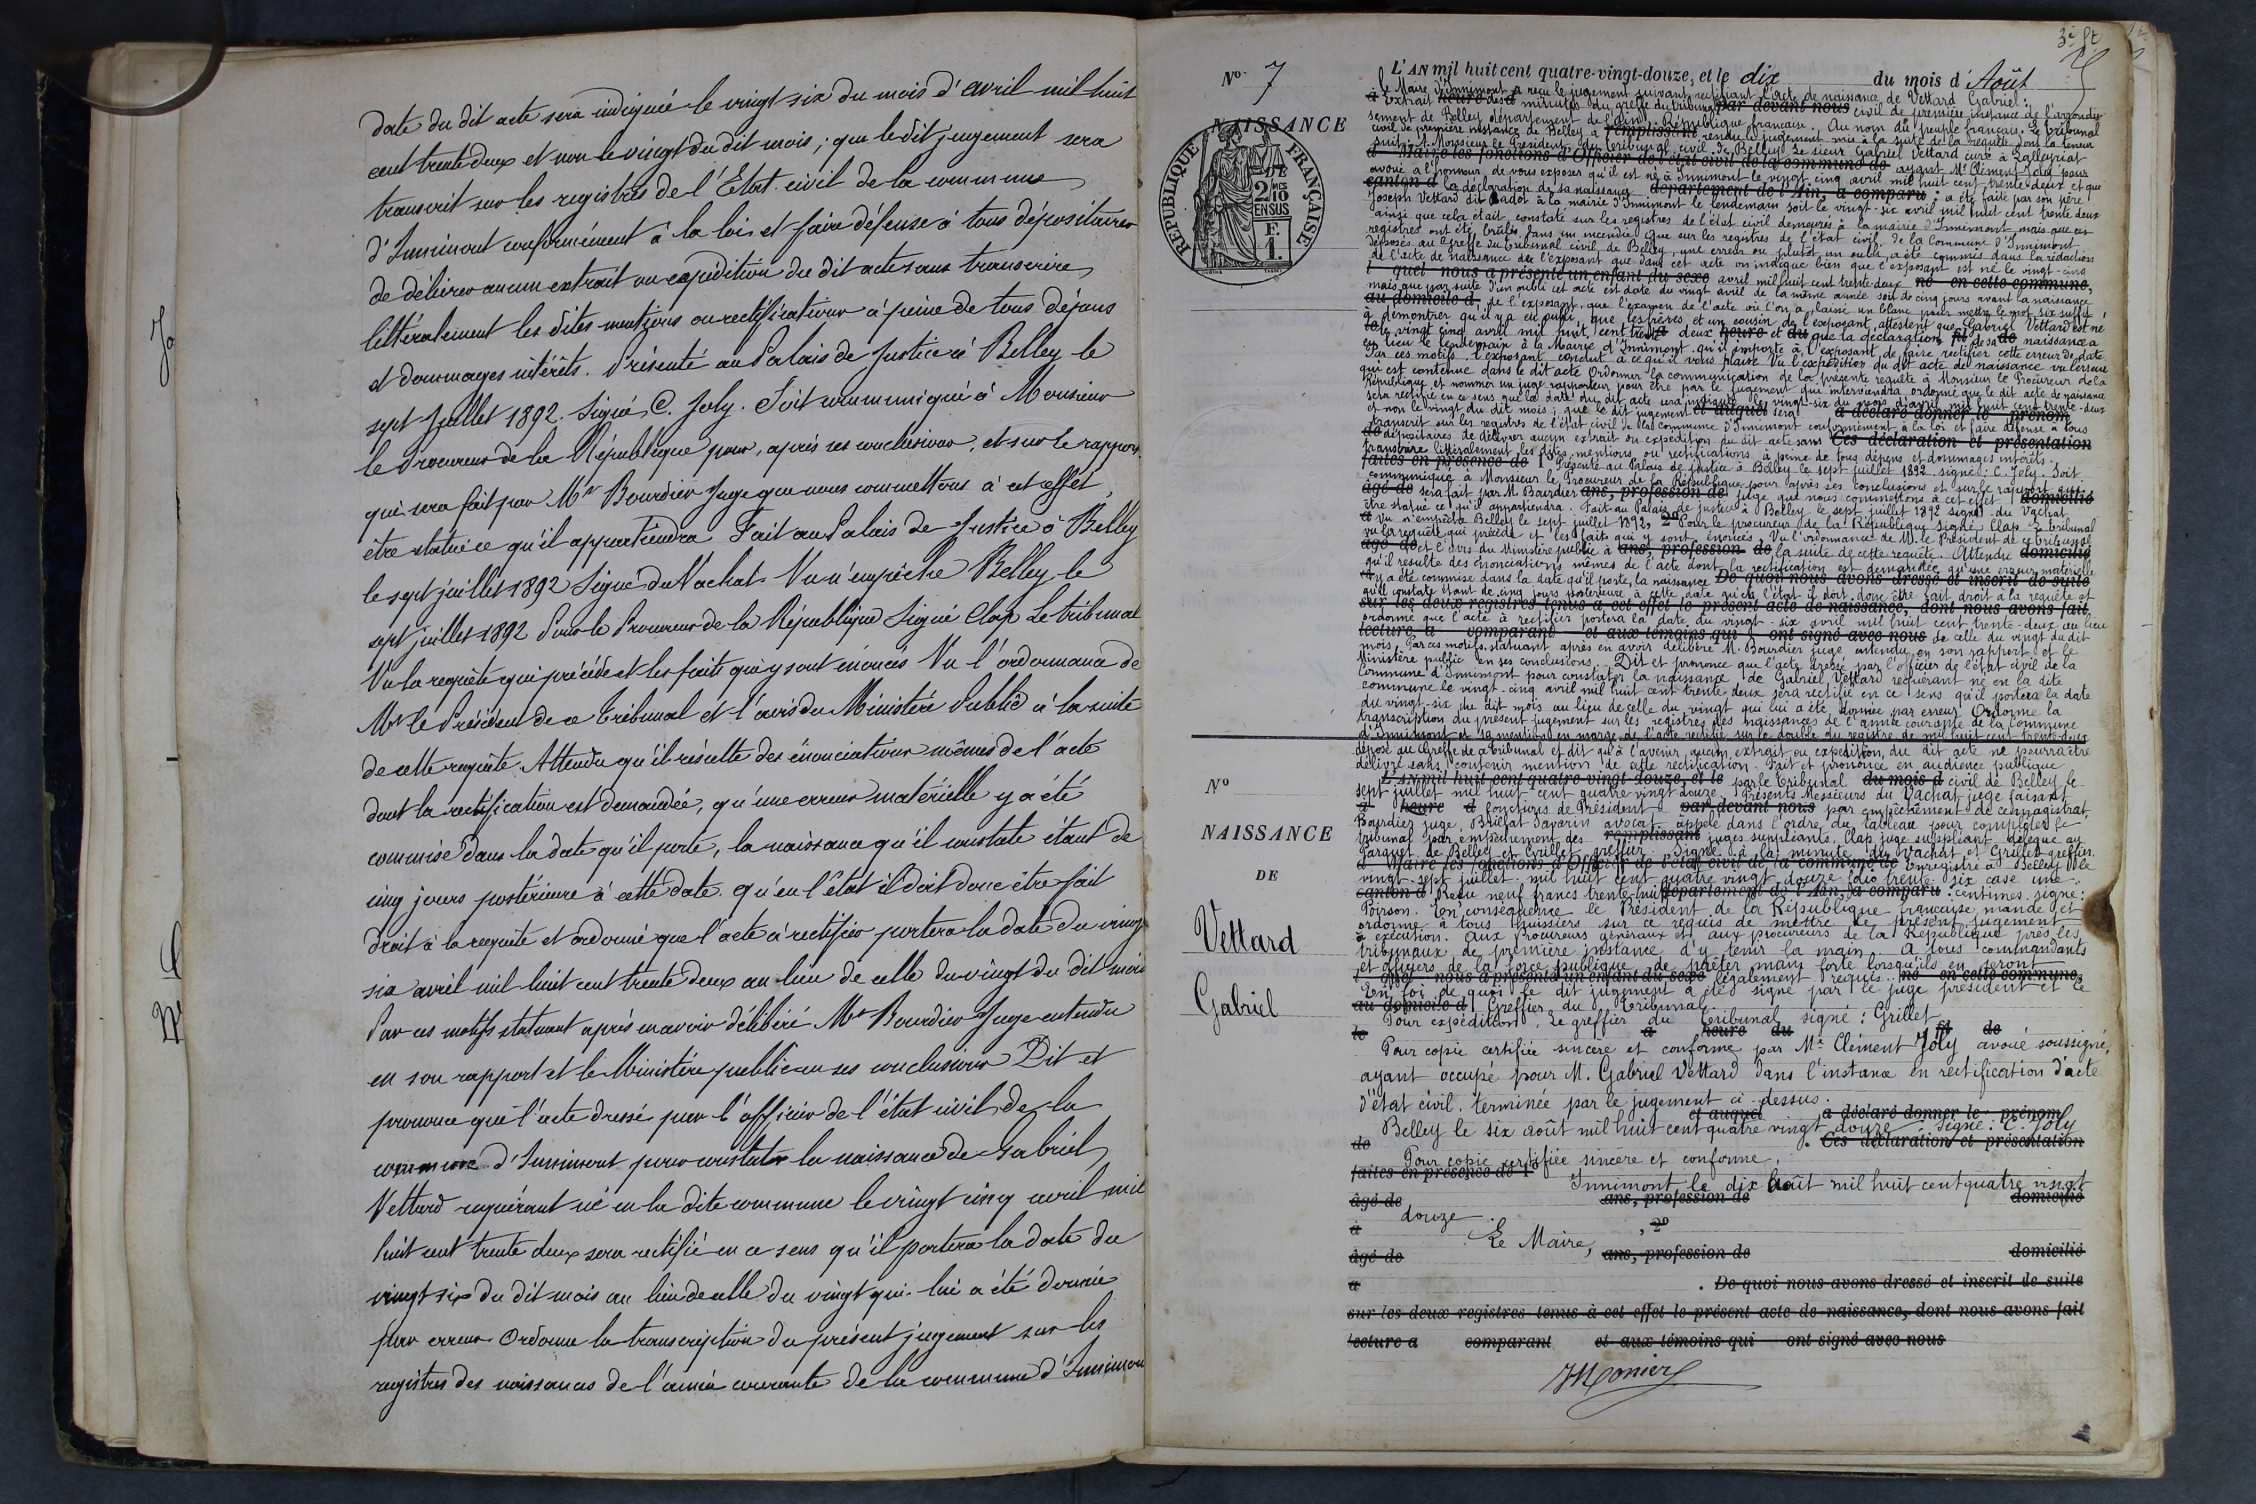 date du dit acte sera indiquée le vingt six du mois d'avril mil huit
cent trente deux et non le vingt du dit mois ; que le dit jugement sera
transcrit sur les registres de l'Etat civil de la commune
d'Innimont conformément à la loi et faire défense à tous dépositaires
de délivrer aucun extrait ou expédition du dit acte sans transcrire
littéralement les dites mentions ou rectifications à peine de tous dépens
et dommages intérêts. Présenté au Palais de Justice à Belley le
sept Juillet 1892. Signé, C. Joly. Soit communiqué à Monsieur
le Procureur de la République pour, après ses conclusions, et sur le rapport
qui sera fait par Mr Bourdier Juge que nous commettons à cet effet,
être statué ce qu'il appartiendra Fait au Palais de Justice à Belley
le sept juillet 1892 Signé du Vachat. Vu n'empêche Belley le
sept juillet 1892 Pour le Procureur de la République Signé Clap Le tribunal
Vu la requête qui précède et les faits qui y sont énoncés Vu l'ordonnance de
Mr le Président de ce Tribunal et l'avis du Ministère Public à la suite
de cette requête. Attendu qu'il résulte des énonciations mêmes de l'acte
dont la rectification est demandée, qu'une erreur matérielle y a été
commise dans la date qu'il porte, la naissance qu'il constate étant de
cinq jours postérieure à cette date. qu'en l'état il doit donc être fait
droit à la requête et ordonné que l'acte à rectifier portera la date du vingt
six avril mil huit cent trente deux au lieu de celle du vingt du dit mois
Par ces motifs statuant après en avoir délibéré Mr Bourdier Juge entendu
en son rapport et le Ministère public en ses conclusions Dit et
prononce que l'acte dressé par l'officier de l'état civil de la
commune d'Innimont pour constater la naissance de Gabriel
Vettard requérant né en la dite commune le vingt cinq avril mil
huit cent trente deux sera rectifié en ce sens qu'il portera la date du
vingt six du dit mois au lieu de celle du vingt qui lui a été donnée
par erreur Ordonne la transcription du présent jugement sur les
registres des naissances de l'année courante de la commune d'Innimont
3e ft
No 7
NAISSANCE
RÉPUBLIQUE FRANÇAISE
2 DES 10 EN SUS
F. 1.
L'AN mil huit cent quatre-vingt-douze, et le dix du mois d'Août
le Maire d'Innimont a reçu le jugement suivant rectifiant l'acte de naissance de Vettard Gabriel :
extrait des minutes du greffe du tribunal civil de première instance de l'arrondis-
sement de Belley département de l'Ain. République française. Au nom du peuple français. Le tribunal
civil de première instance de Belley a rendu le jugement mis à la suite de la requête dont la teneur
suit. A Monsieur le Président du tribunal civil de Belley Le sieur Gabriel Vettard curé à Lalleyriat
ayant Me Clément Joly pour
avoué a l'honneur de vous exposer qu'il est né à Innimont le vingt cinq avril mil huit cent trente deux et que
la déclaration de sa naissance a été faite par son père
Joseph Vettard dit Cadot à la mairie d'Innimont le lendemain soit le vingt-six avril mil huit cent trente deux
ainsi que cela était constaté sur les registres de l'état civil demeurés à la mairie d'Innimont mais que ces
registres ont été brûlés dans un incendie Que sur les registres de l'état civil de la Commune d'Innimont
déposés au Greffe du tribunal civil de Belley, une erreur ou plutôt un oubli a été commis dans la rédaction
de l'acte de naissance de l'exposant que dans cet acte on indique bien que l'exposant est né le vingt-cinq
avril mil huit cent trente-deux
mais que par suite d'un oubli cet acte est daté du vingt avril de la même année soit de cinq jours avant la naissance
de l'exposant. que l'examen de l'acte où l'on a laissé un blanc pour mettre le mot six suffit
à démontrer qu'il y a eu oubli, que les frères et un cousin de l'exposant attestent que Gabriel Vettard est né
le vingt cinq avril mil huit cent trente deux et que la déclaration de sa naissance a
eu lieu le lendemain à la Mairie d'Innimont qu'il importe à l'exposant de faire rectifier cette erreur de date
Par ces motifs l'exposant conclut à ce qu'il vous plaise Vu l'expédition du dit acte de naissance vu l'erreur
qui est contenue dans le dit acte Ordonner la communication de la présente requête à Monsieur le Procureur de la
République et nommer un juge rapporteur pour être par le jugement qui interviendra ordonné que le dit acte de naissance
sera rectifié en ce sens que la date du dit acte sera indiquée le vingt-six du mois d'avril mil huit cent trente-deux
et non le vingt du dit mois ; que le dit jugement sera
transcrit sur les registres de l'état civil de la commune d'Innimont conformément à la loi et faire défense à tous
dépositaires de délivrer aucun extrait ou expédition du dit acte sans
transcrire littéralement les dites mentions ou rectifications à peine de tous dépens et dommages intérêts.
Présenté au Palais de justice à Belley le sept juillet 1892 signé : C. Joly. Soit
communiqué à Monsieur le Procureur de la République pour après ses conclusions et sur le rapport qui
sera fait par M. Bourdier juge que nous commettons à cet effet
être statué ce qu'il appartiendra. Fait au Palais de justice à Belley le sept juillet 1892 signé du Vachat
Vu n'empêche Belley le sept juillet 1892, Pour le procureur de la République signé Clap Le tribunal
vu la requête qui précède et les faits qui y sont énoncés Vu l'ordonnance de M. le Président de ce tribunal
et l'avis du Ministère public à la suite de cette requête. Attendu
qu'il résulte des énonciations mêmes de l'acte dont la rectification est demandée qu'une erreur matérielle
y a été commise dans la date qu'il porte, la naissance
qu'il constate étant de cinq jours postérieure à cette date qu'en l'état il doit donc être fait droit à la requête et
ordonné que l'acte à rectifier portera la date du vingt-six avril mil huit cent trente-deux au lieu
de celle du vingt du dit
mois. Par ces motifs, statuant après en avoir délibéré M. Bourdier juge entendu en son rapport et le
Ministère public en ses conclusions. Dit et prononce que l'acte dressé par l'officier de l'état civil de la
Commune d'Innimont pour constater la naissance de Gabriel Vettard requérant né en la dite
commune le vingt-cinq avril mil huit cent trente deux sera rectifié en ce sens qu'il portera la date
du vingt-six du dit mois au lieu de celle du vingt qui lui a été donnée par erreur Ordonne la
transcription du présent jugement sur les registres des naissances de l'année courante de la Commune
d'Innimont et sa mention en marge de l'acte rectifié sur le double du registre de mil huit cent trente-deux
déposé au Greffe de ce tribunal et dit qu'à l'avenir, aucun extrait ou expédition du dit acte ne pourra être
délivré sans contenir mention de cette rectification. Fait et prononcé en audience publique
No
NAISSANCE
DE
Vettard
Gabriel
par le tribunal civil de Belley le
sept juillet mil huit cent quatre vingt douze. Présents Messieurs du Vachat juge faisant
fonctions de Président par empêchement de ce magistrat,
Bourdier juge, Brillat Savarin avocat appelé dans l'ordre du tableau pour compléter le
tribunal par empêchement des juges suppléants, Clap juge suppléant délégué au
Parquet de Belley et Grillet greffier Signé à la minute du Vachat et Grillet greffier.
Enregistré à Belley le
vingt-sept juillet mil huit cent quatre vingt douze folio trente-six case une.
Reçu neuf francs trente-huit centimes. signé :
Poirson. En conséquence le Président de la République française mande et
ordonne à tous huissiers sur ce requis de mettre le présent jugement
à exécution. Aux Procureurs généraux et aux procureurs de la République près les
tribunaux de première instance d'y tenir la main. A tous commandants
et officiers de la force publique de prêter main forte lorsqu'ils en seront
légalement requis.
En foi de quoi le dit jugement a été signé par le juge président et le
Greffier du Tribunal.
Pour expédition, Le greffier du Tribunal signé : Grillet
Pour copie certifiée sincère et conforme par Me Clément Joly avoué soussigné,
ayant occupé pour M. Gabriel Vettard dans l'instance en rectification d'acte
d'état civil, terminée par le jugement ci-dessus.
Belley le six août mil huit cent quatre vingt douze. Signé : C. Joly
Pour copie certifiée sincère et conforme,
Innimont le dix août mil huit cent quatre vingt
douze.
Le Maire,
ans, profession de domicilié
De quoi nous avons dressé et inscrit de suite
sur les deux registres tenus à cet effet le présent acte de naissance, dont nous avons fait
lecture a comparant et aux témoins qui ont signé avec nous